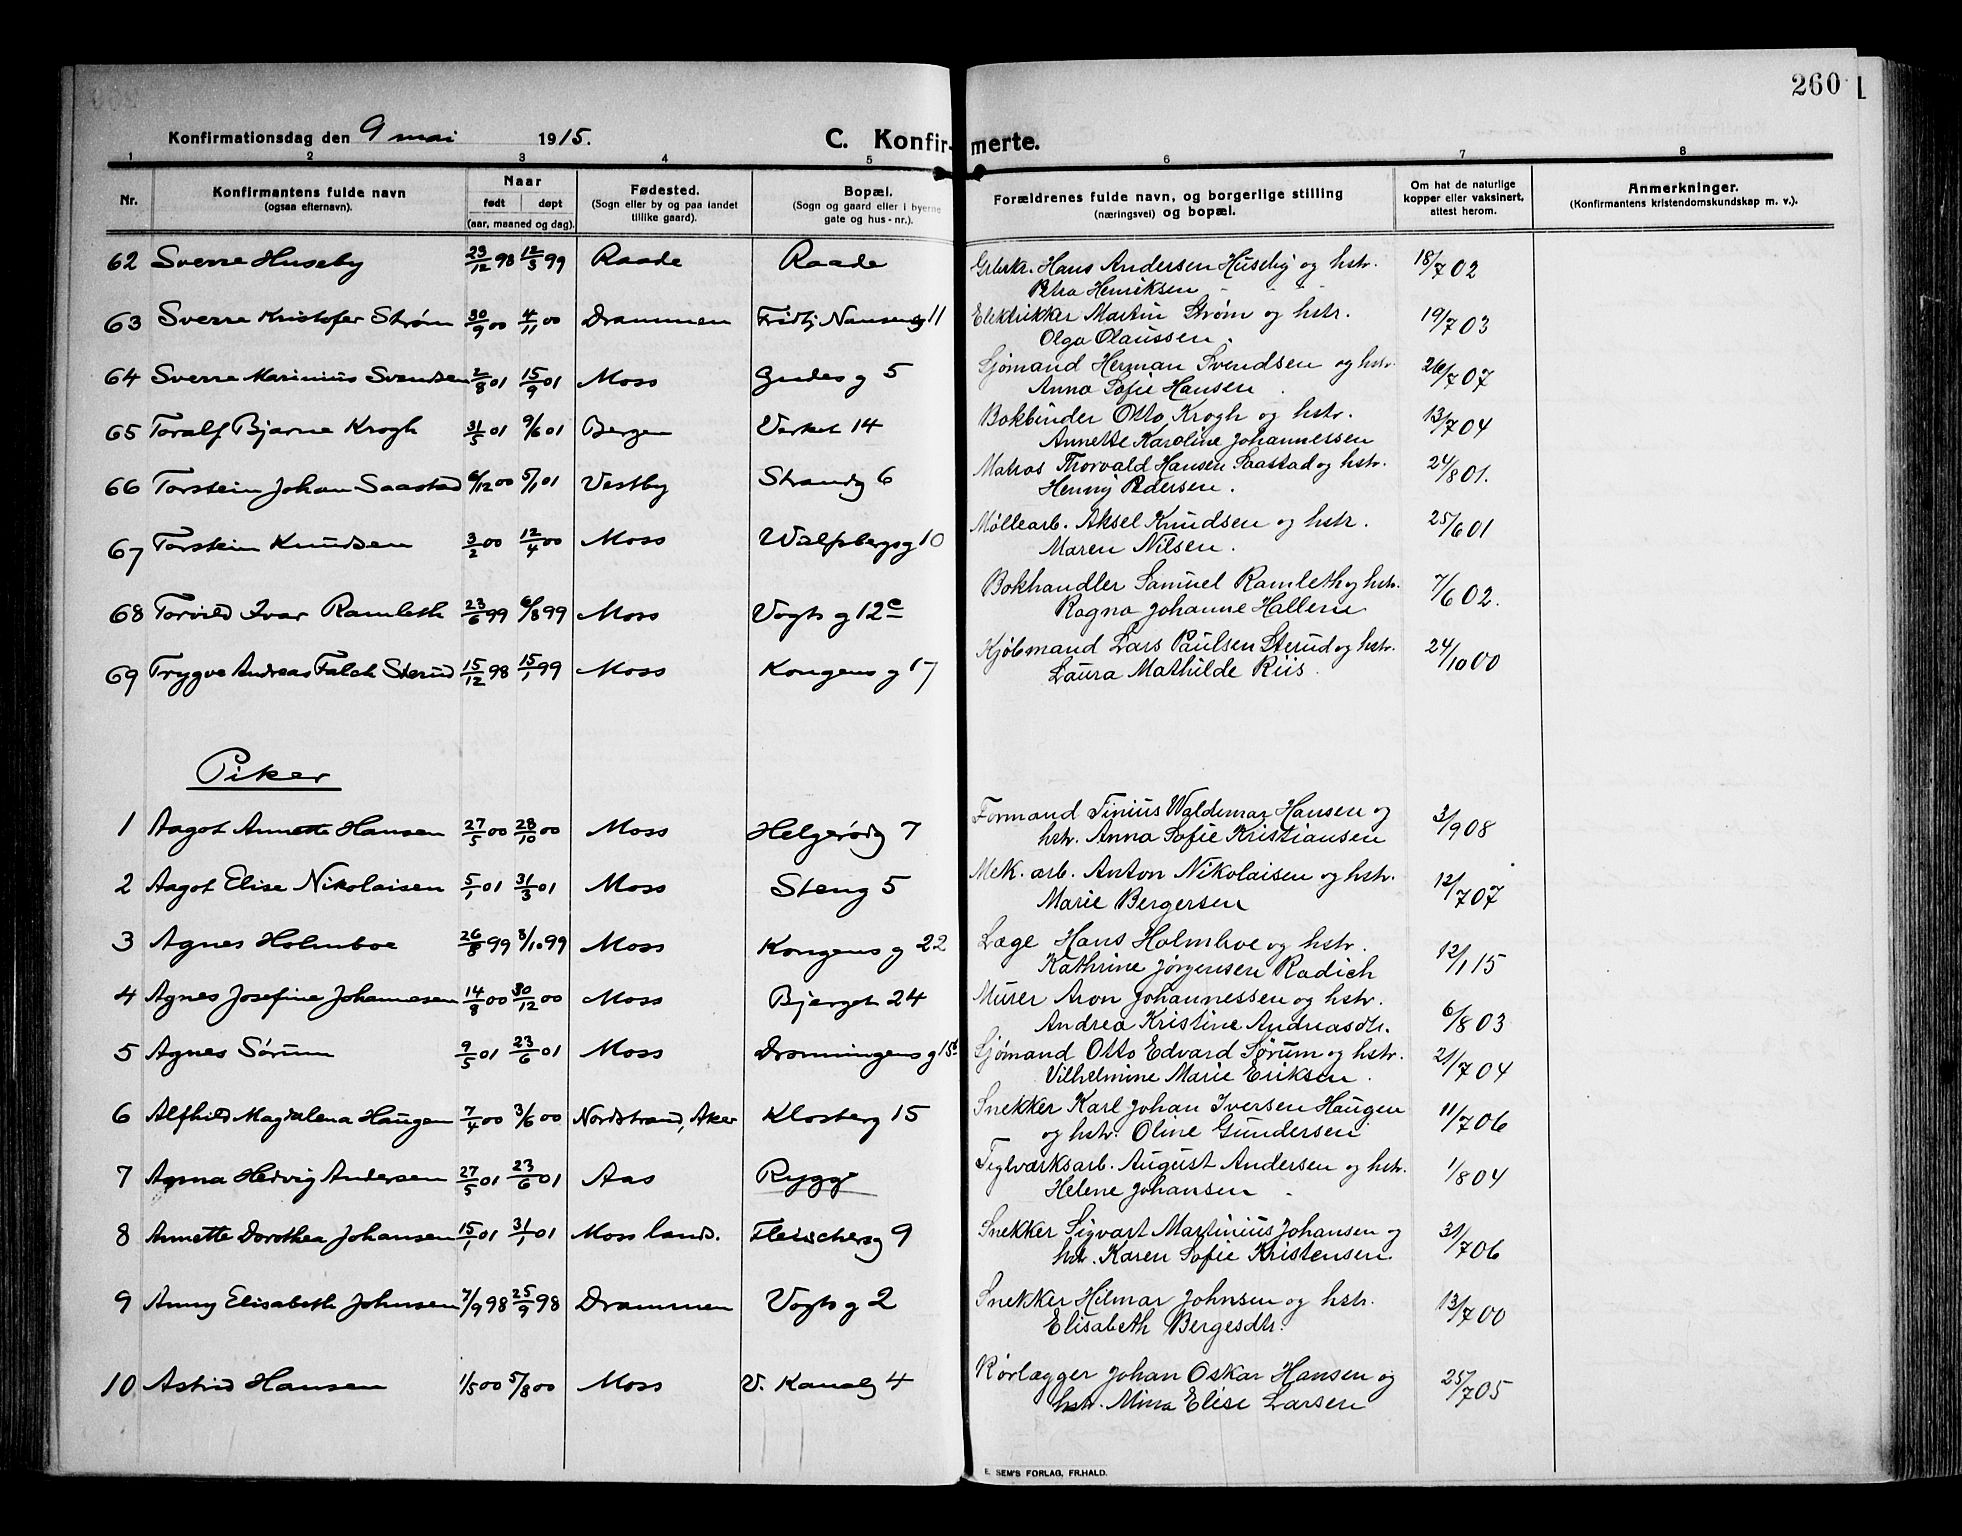 260
Konfirmationsdag den 9 mai 1915.
C. Konfirmerte.
1 2 3 4 5 6 7 8
Nr.
Konfirmantens fulde navn
(ogsaa efternavn).
Naar
født døpt
(aar, maaned og dag).
Fødested.
(Sogn eller by og paa landet
tillike gaard).
Bopæl.
(Sogn og gaard eller i byerne
gate og hus-nr.).
Forældrenes fulde navn, og borgerlige stilling
(næringsvei) og bopæl.
Om hat de naturlige
kopper eller vaksinert,
attest herom.
Anmerkninger.
(Konfirmantens kristendomskundskap m. v.).
62 Sverre Huseby 23/12 98 12/3 99 Raade Raade Grbrkr. Hans Andersen Huseby og hstr. 18/7 02
Petra Henriksen
63 Sverre Kristofer Strøm 30/9 00 4/11 00 Drammen Fridtj. Nansens g 11 Elektrikker Martin Strøm og hstr. 19/7 03
Olga Olaussen.
64 Sverre Marinius Svendsen 2/8 01 15/9 01 Moss Gudes g 5 Sjømand Herman Svendsen og hstr. 26/7 07
Anna Sofie Hansen
65 Toralf Bjarne Krogh 31/5 01 9/6 01 Bergen Verket 14 Bokbinder Otto Krogh og hstr. 13/7 04
Annette Karoline Johannessen
66 Torstein Johan Saastad 6/12 00 5/1 01 Vestby Strandg 6 Matros Thorvald Hansen Saastad og hstr. 24/8 01.
Henny Pedersen.
67 Torstein Knudsen 3/2 00 12/4 00 Moss Wulfsbergs g 10 Møllearb. Aksel Knudsen og hstr. 25/6 01
Maren Nilsen.
68 Torvild Ivar Ramleth 23/6 99 6/8 99 Moss Vogts g 12c Bokhandler Samuel Ramleth og hstr. 7/6 02.
Ragna Johanne Hallern
69 Trygve Andreas Falch Sterud 15/12 98 15/1 99 Moss Kongens g 17 Kjøbmand Lars Paulsen Sterud og hstr. 24/10 00
Laura Mathilde Riis.
Piker
1 Aagot Annette Hansen 27/5 00 28/10 00 Moss Helgerødg 7 Formand Tinius Waldemar Hansen og 3/9 08
hstr. Anna Sofie Kristiansen
2 Aagot Elise Nikolaisen 5/1 01 31/3 01 Moss Steng 5 Mek. arb. Anton Nikolaisen og hstr. 12/7 07
Marie Bergersen
3 Agnes Holmboe 26/8 99 3/10 99 Moss Kongens g 22 Læge Hans Holmboe og hstr. 12/1 15
Kathrine Jørgensen Radich
4 Agnes Josefine Johannesen 14/8 00 30/12 00 Moss Bjerget 24 Murer Aron Johannessen og hstr. 6/8 03
Andrea Kristine Andreasdtr.
5 Agnes Sørum 9/5 01 23/6 01 Moss Dronningens g 15b Sjømand Otto Edvard Sørum og hstr. 21/7 04
Vilhelmine Marie Eriksen.
6 Alfhild Magdalena Haugen 7/4 00 3/6 00 Nordstrand, Aker Klosterg 15 Snekker Karl Johan Iversen Haugen 11/7 06
og hstr. Oline Gundersen
7 Agna Hedvig Andersen 27/5 01 23/6 01 Aas Rygge Teglværksarb. August Andersen og hstr. 1/8 04
Helene Johansen
8 Annette Dorothea Johansen 15/1 01 31/1 01 Moss lands. Fleischersg 9 Snekker Sigvart Martinius Johansen og 31/7 06
hstr. Karen Sofie Kristensen
9 Anny Elisabeth Johnsen 7/9 98 25/9 98 Drammen Vogts g 2 Snekker Hilmar Johnsen og hstr. 13/7 00
Elisabeth Bergesdtr.
10 Astrid Hansen 1/5 00 5/8 00 Moss V. Kanalg 4 Rørlægger Johan Oskar Hansen og 25/7 05
hstr. Mina Elise Larsen
E. SEM'S FORLAG, FR.HALD.